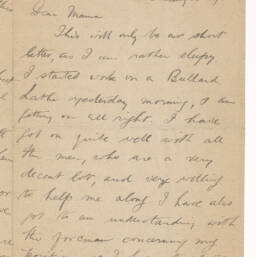 Dear Mama
This will only be a short
letter, as I am rather sleepy.
I started work on a Bullard
Lathe yesterday morning, & am
getting on all right. I have
got on quite well with all
the men, who are a very
decent lot, and very willing
to help me along I have also
got to an understanding with
the foreman concerning my